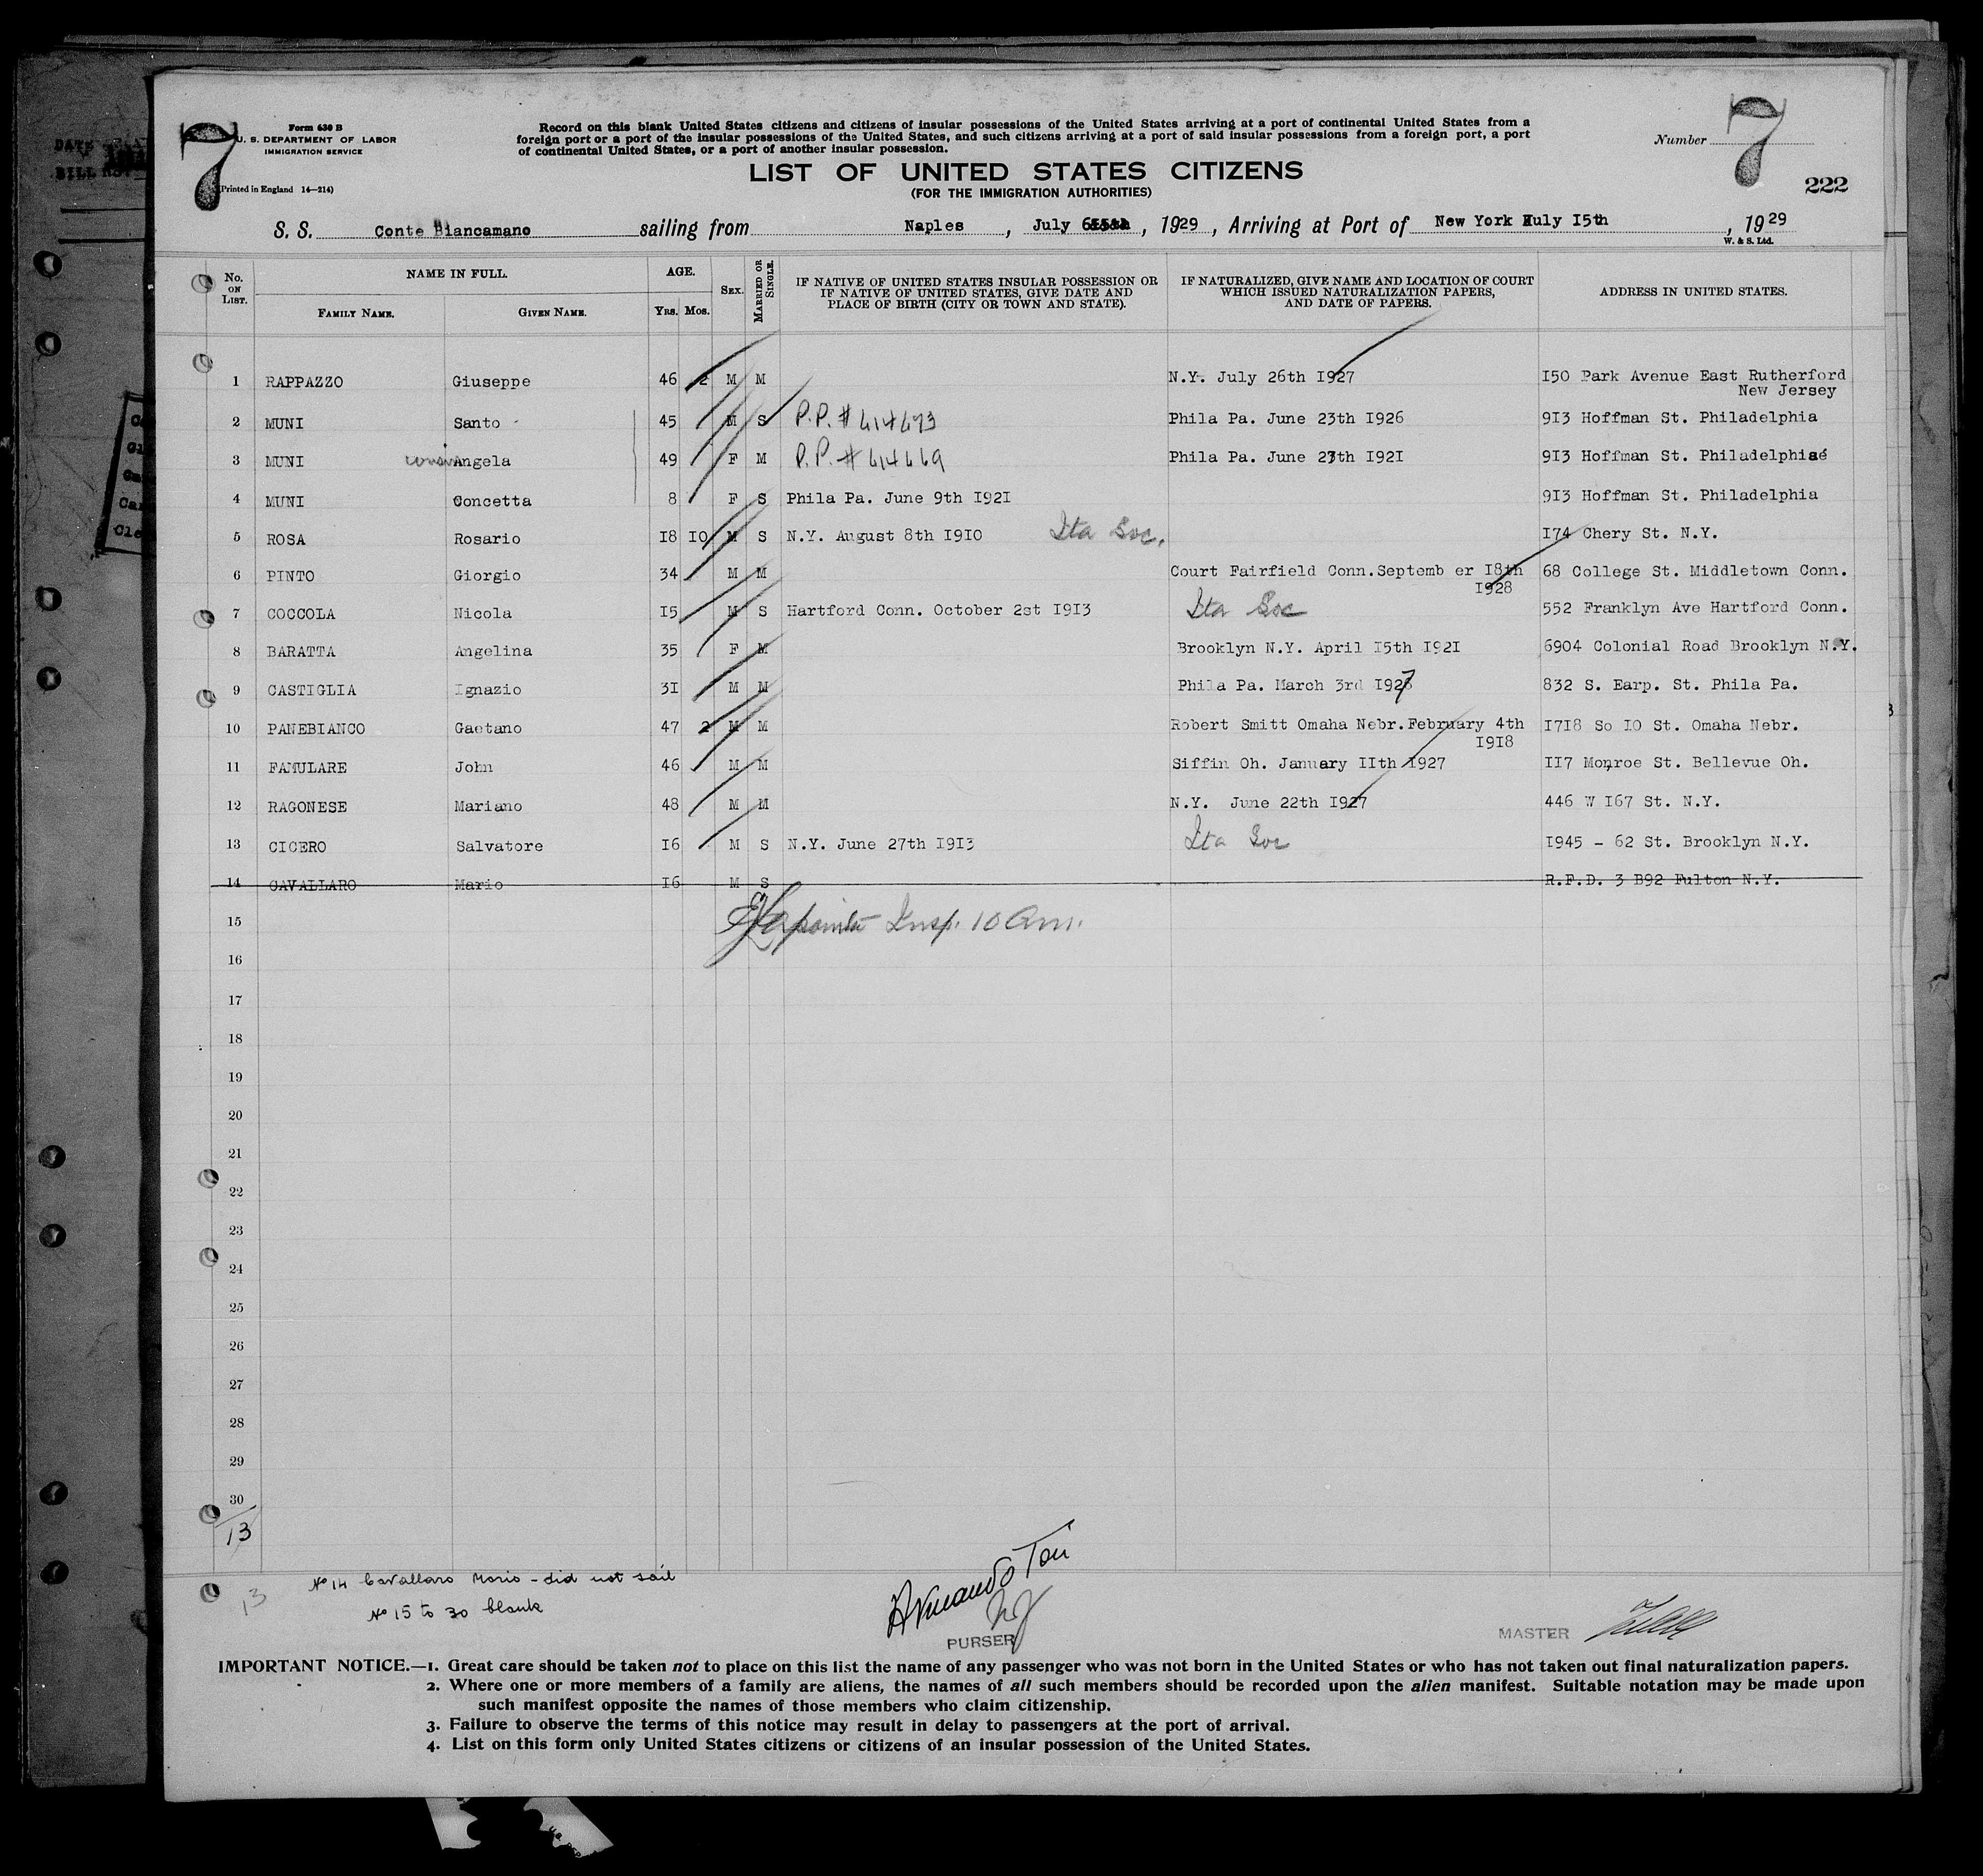 7
Form 630 B
U. S. DEPARTMENT OF LABOR
IMMIGRATION SERVICE
(Printed in England 14—214)
Record on this blank United States citizens and citizens of insular possessions of the United States arriving at a port of continental United States from a
foreign port or a port of the insular possessions of the United States, and such citizens arriving at a port of said insular possessions from a foreign port, a port
of continental United States, or a port of another insular possession.
LIST OF UNITED STATES CITIZENS
(FOR THE IMMIGRATION AUTHORITIES)
Number 7
222
S. S. Conte Biancamano sailing from Naples, July 6, 1929, Arriving at Port of New York July I5th, 1929
W. & S. Ltd.
No. ON LIST. NAME IN FULL. AGE. SEX. MARRIED OR SINGLE. IF NATIVE OF UNITED STATES INSULAR POSSESSION OR IF NATIVE OF UNITED STATES, GIVE DATE AND PLACE OF BIRTH (CITY OR TOWN AND STATE). IF NATURALIZED, GIVE NAME AND LOCATION OF COURT WHICH ISSUED NATURALIZATION PAPERS, AND DATE OF PAPERS. ADDRESS IN UNITED STATES.
FAMILY NAME. GIVEN NAME. YRS. MOS.
1 RAPPAZZO Giuseppe 46 2 M M N.Y. July 26th I927 I50 Park Avenue East Rutherford
New Jersey
2 MUNI Santo 45 M S P.P. # 414493 Phila Pa. June 23th I926 9I3 Hoffman St. Philadelphia
3 MUNI cousin Angela 49 F M P.P. # 414449 Phila Pa. June 27th I92I 9I3 Hoffman St. Philadelphia
4 MUNI Concetta 8 F S Phila Pa. June 9th I92I 9I3 Hoffman St. Philadelphia
5 ROSA Rosario I8 IO M S N.Y. August 8th I9I0 Ita Soc. I74 Chery St. N.Y.
6 PINTO Giorgio 34 M M Court Fairfield Conn.Septemb er I8th 68 College St. Middletown Conn.
I928
7 COCCOLA Nicola I5 M S Hartford Conn. October 2st I9I3 Ita Soc 552 Franklyn Ave Hartford Conn.
8 BARATTA Angelina 35 F M Brooklyn N.Y. April I5th I92I 6904 Colonial Road Brooklyn N.Y.
9 CASTIGLIA Ignazio 3I M M Phila Pa. March 3rd I927 832 S. Earp. St. Phila Pa.
10 PANEBIANCO Gaetano 47 2 M M Robert Smitt Omaha Nebr.February 4th I7I8 So IO St. Omaha Nebr.
I9I8
11 FAMULARE John 46 M M Siffin Oh. January IIth I927 II7 Monroe St. Bellevue Oh.
12 RAGONESE Mariano 48 M M N.Y. June 22th I927 446 W I67 St. N.Y.
13 CICERO Salvatore I6 M S N.Y. June 27th I9I3 Ita Soc I945 - 62 St. Brooklyn N.Y.
14 CAVALLARO Mario I6 M S R.F.D. 3 B92 Fulton N.Y.
15 Insp. 10 Am.
16
17
18
19
20
21
22
23
24
25
26
27
28
29
30
13
13
No 14 Cavallaro Mario - did not sail
No 15 to 30 blank
Armando
PURSER
MASTER
IMPORTANT NOTICE.—1. Great care should be taken not to place on this list the name of any passenger who was not born in the United States or who has not taken out final naturalization papers.
2. Where one or more members of a family are aliens, the names of all such members should be recorded upon the alien manifest. Suitable notation may be made upon
such manifest opposite the names of those members who claim citizenship.
3. Failure to observe the terms of this notice may result in delay to passengers at the port of arrival.
4. List on this form only United States citizens or citizens of an insular possession of the United States.